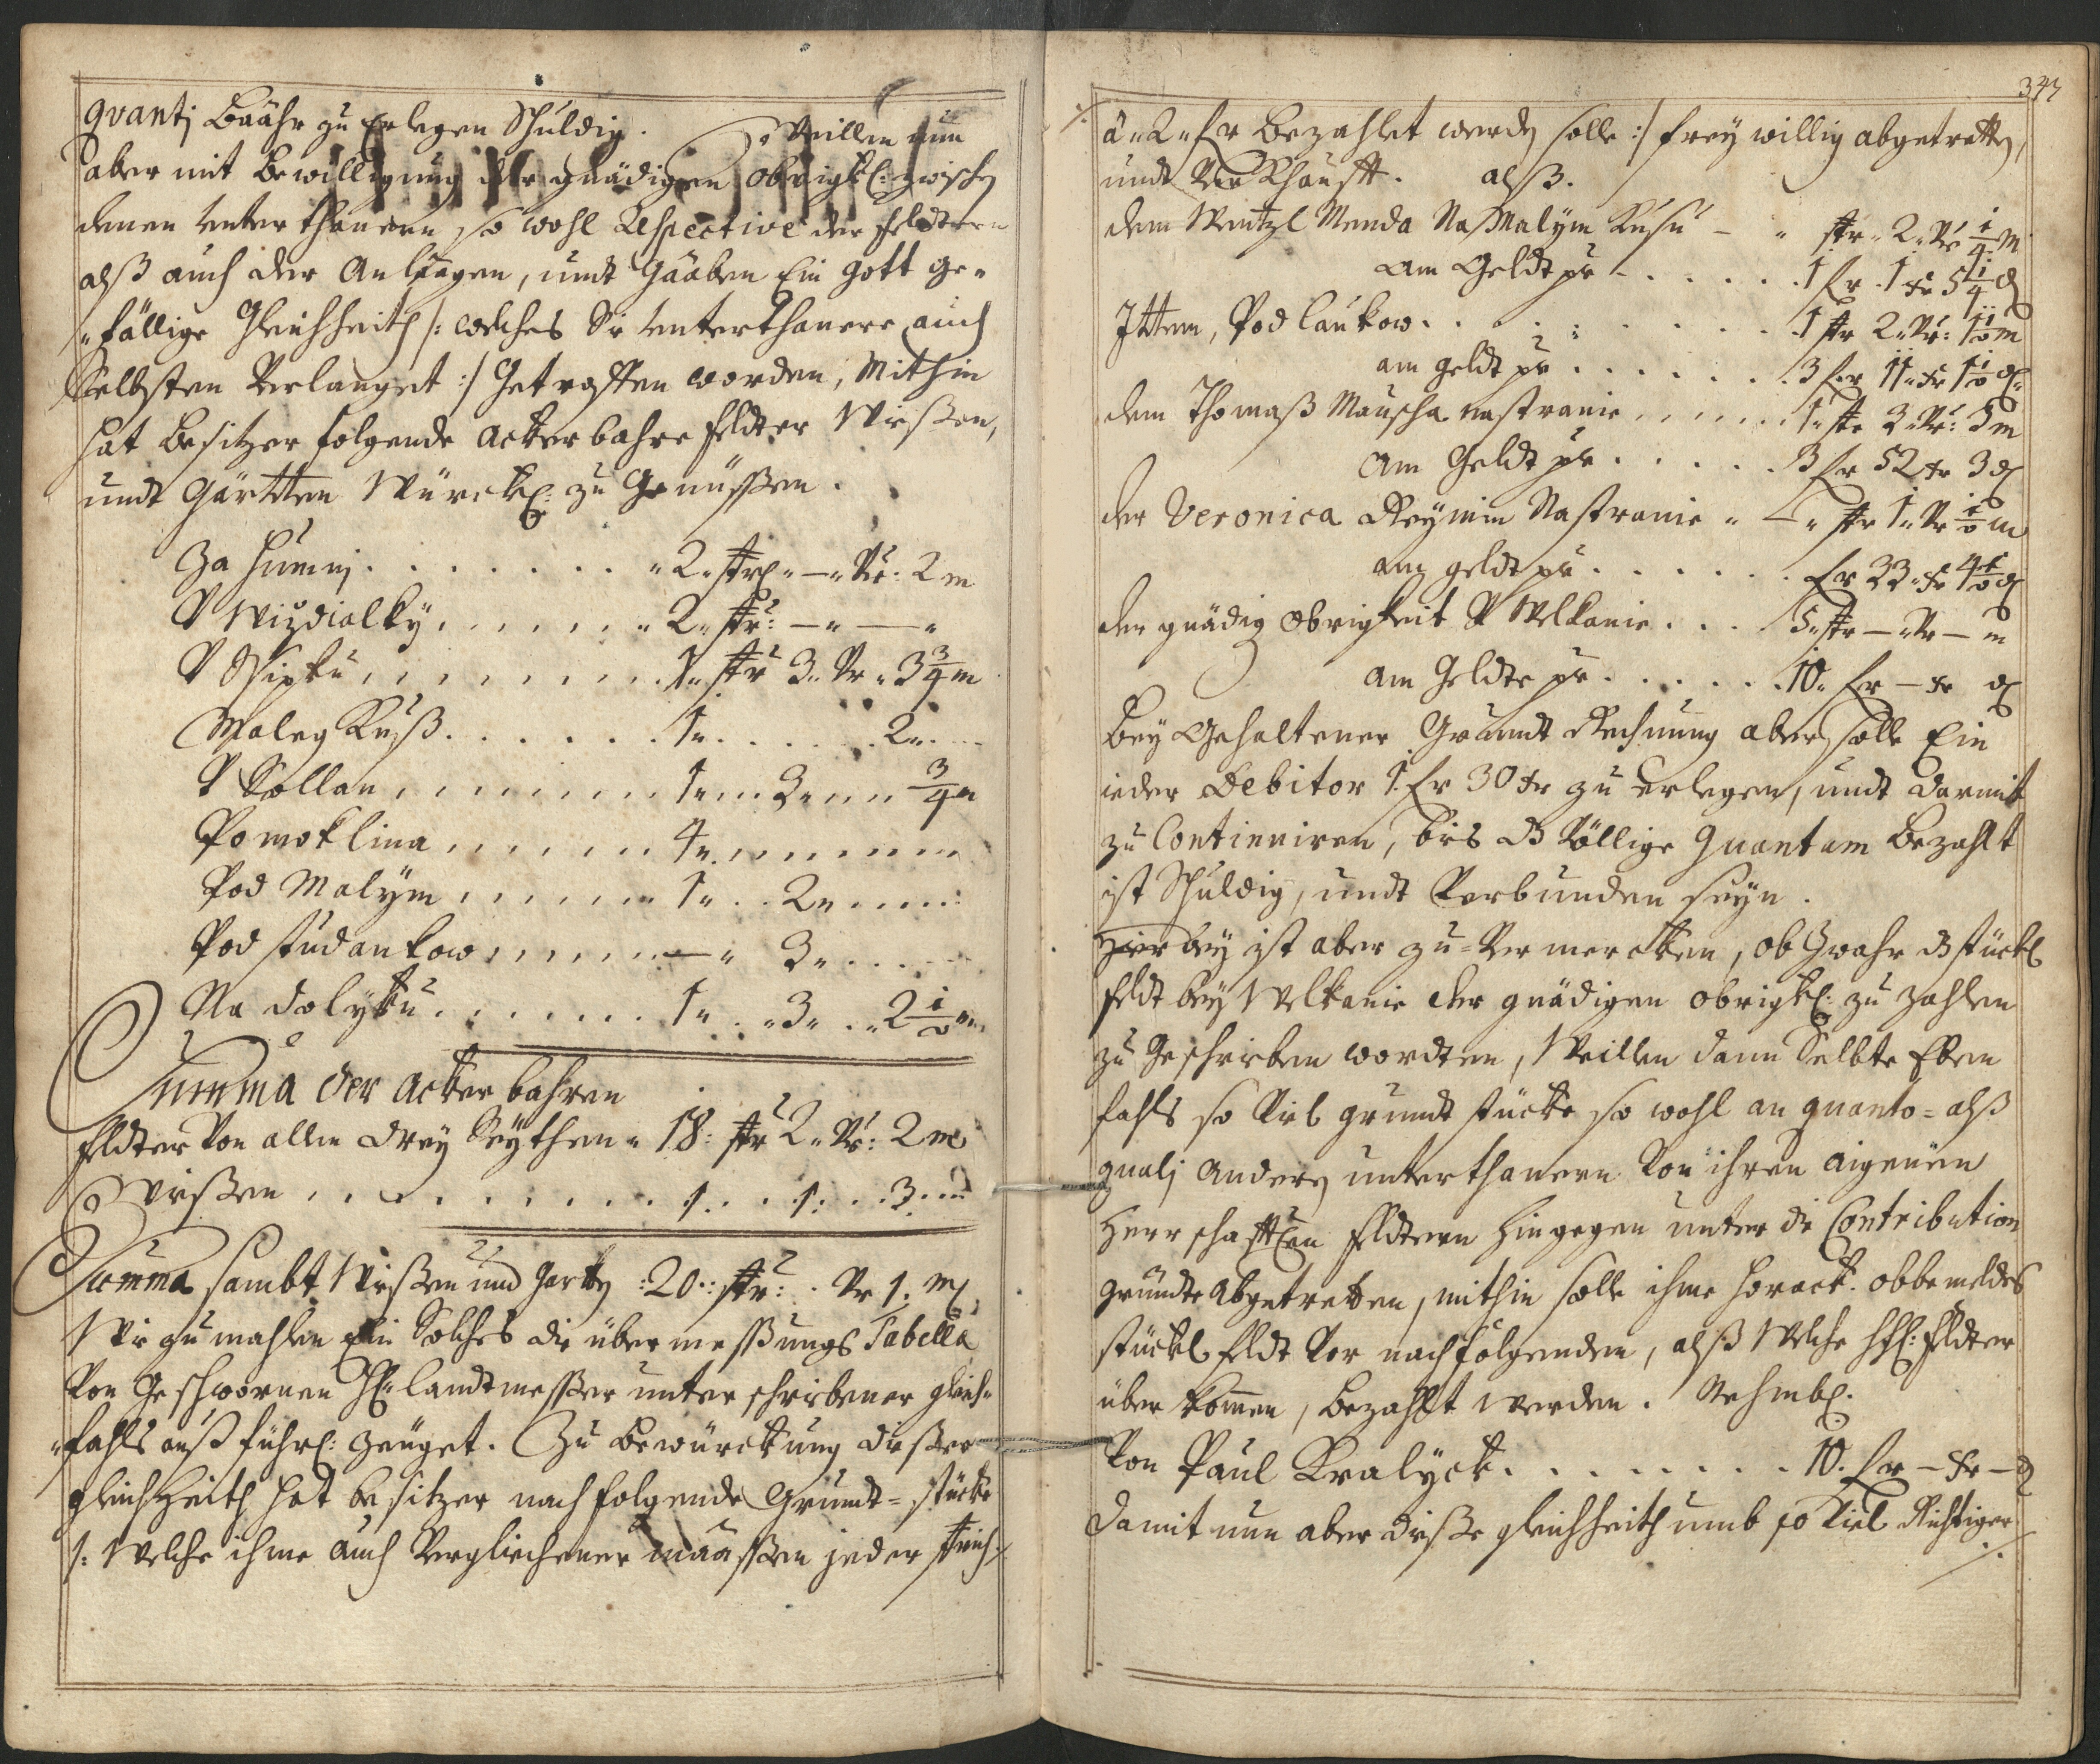 quanti Baahr zu Erlegen Schuldig. Weillen nun
aber mit Bewilligung der gnädigen Obrigkl: zwischen
denen Unterthanern so wohl Respective der feldtern
alß auch der Anlaagen, undt Gaaben Ein Gott ge-
-fällige Gleichheith /: welches Sie Unterthanere auch
Selbsten Verlanget :/ Getroffen worden, Mithin
hat Besitzer folgende Ackerbahre feldter Wießen,
undt Gärtten Würckl: zu Genüssen.
Za Humnj . . . . . . . " 2 " str " — " Vr: 2 m
V Wizdialky . . . . . . " 2 " str: — " — "
V Ssipku . . . . . . . . 1 " str 3 " Vr " 3 3/4 m
Maleg Kuß . . . . . . 1 " . . . . . 2 " . .
V Sollan . . . . . . . 1 " . . . 3 " . . . 3/4 "
Pomoklina . . . . . . 4 " . . . . . . .
Pod Malym . . . . . . 1 " . . 2 " . . . .
Pod studankow . . . . . — " 3 " . . . .
Na dolyku . . . . . . . 1 " . " 3 " . . " 2 1/2 "
Summa der Ackerbahren
feldter Von allen drey Seythen " 18: str 2 " Vr: 2 m
Wießen . . . . . . . . . . 1. . . 1: . . 3. . .
Summa sambt Wießen und Gartten : 20 : str: . Vr 1. m
Wie zumahlen Ein Solches die übermessungs Tabella
Von Geschwornen H: landtmesser unterschriebener gleich-
-fahls außführl: zeüget. Zu Bewürckung dießer
gleichheith hat besitzer nachfolgende Grundt=stücke
/: Welche ihme auch Verglichener maassen jeder strich
347
â " 2 " fr Bezahlet werden solle :/ freywillig abgetretten,
undt Verkhaufft. alß.
dem Wentzl Menda Na Malym Kusu — " str " 2 " Vr 1/4 m
am Geldt pr . . . . . . 1 fr . 1 xr 5 1/4 d
Ittem, Pod laukow . . . . . . . . 1 str 2 " Vr: 1 1/2 m
am geldt pr . . . . . . . 3 fr 11 " xr 1 1/2 d
dem Thomaß Mauscha nastranie . . . . . 1 " str 3 " Vr: 3 m
am Geldt pr . . . . . 3 fr 52 xr 3 d
der Veronica Reymin Nastranie " — " str 1 " Vr 1/2 m
am geldt pr . . . . . . fr 33 " xr 4 1/2 d
der gnädig Obrigkeit V Welkanie . . . 5 " str — " Vr — m
am Geldte pr . . . . . . 10 " fr — xr d
Bey Gehaltener Grundt Rechnung aber solle Ein
ieder Debitor 1. fr 30 xr zu erlegen, undt darmit
zu Continuiren, bies d Völlige Quantum Bezahlt
ist Schuldig, undt Verbunden seyn.
Hierbey ist aber zu=Vermercken, ob Zwahr d stückl
feldt bey Welkanie der gnädigen Obrigkl: zu zahlen
zu Geschrieben wordten, Weillen dann Selbte Eben
fahls so Viel grundtstücke so wohl an quanto = alß
quali Andern unterthanern Von ihren aigenen
Herrschafftlen feldtern hingegen unter die Contribution
gründte Abgetretten, mithin solle ihme Horack obbemeldes
stückl feldt Von nachfolgenden, alß Welche Hl: feldter
überkommen, Bezahlt werden. Nehmbl.
Von Paul Kralyck . . . . . . . . 10. fr — xr — d
damit nun aber dieße gleichheith umb so Viel Richtiger